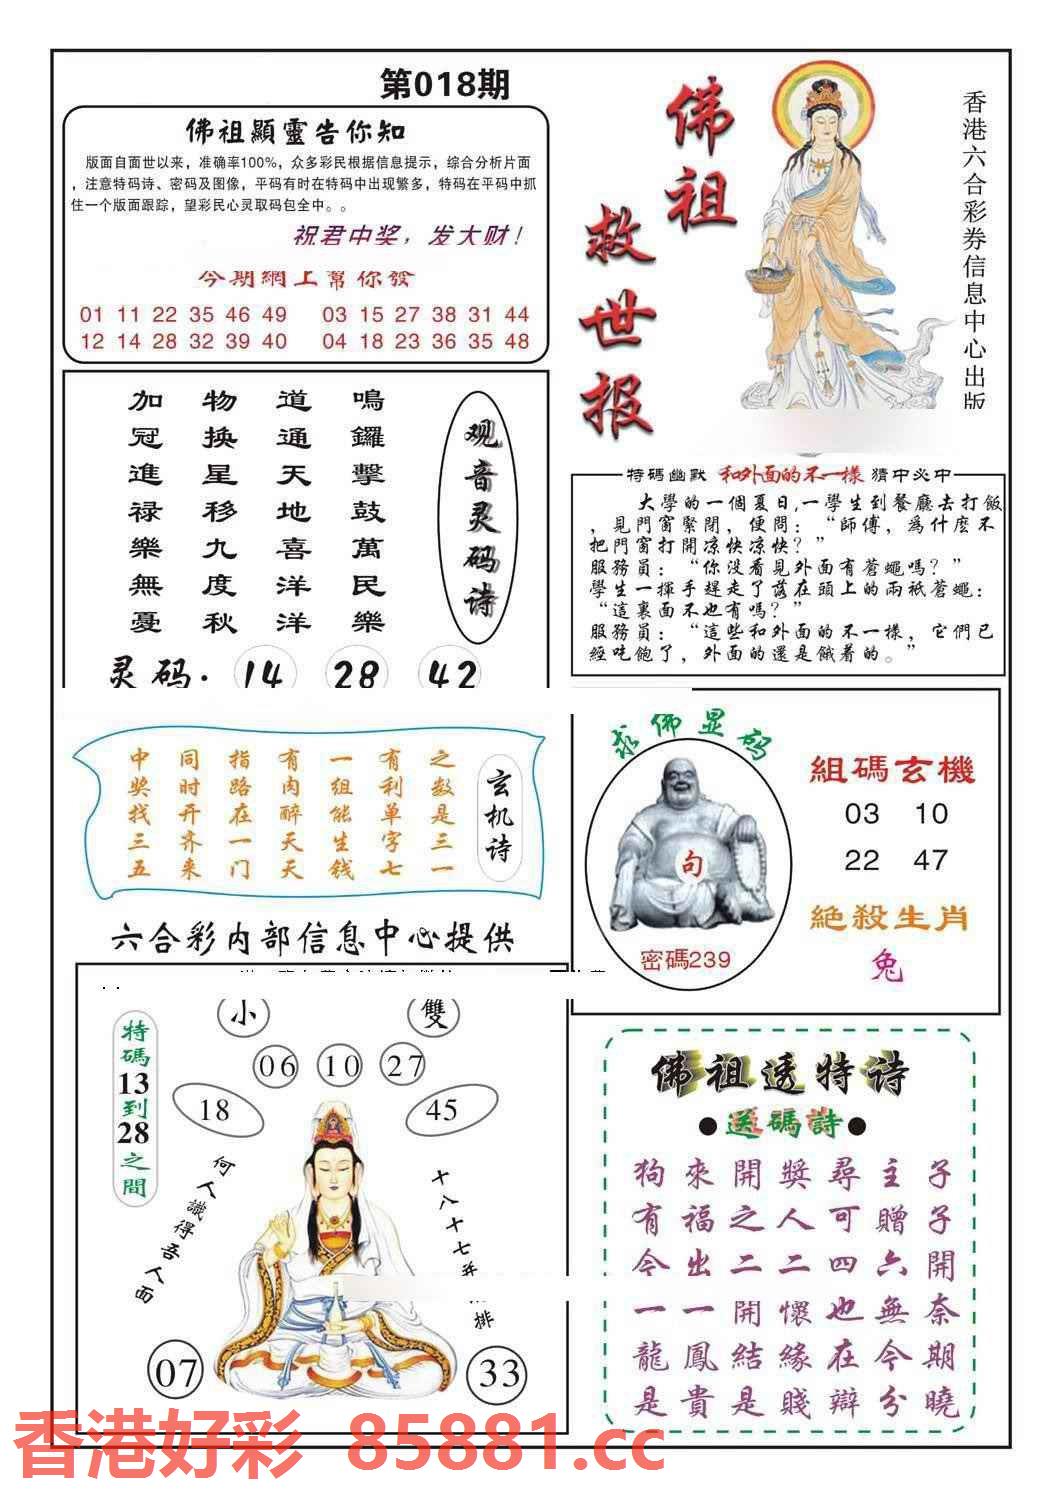 第018期
佛祖顯靈告你知
版面自面世以来，准确率100%，众多彩民根据信息提示，综合分析片面
，注意特码诗、密码及图像，平码有时在特码中出现繁多，特码在平码中抓
住一个版面跟踪，望彩民心灵取码包全中。。
祝君中奖，发大财！
今期網上幫你發
01 11 22 35 46 49 03 15 27 38 31 44
12 14 28 32 39 40 04 18 23 36 35 48
佛祖
救世报
香港六合彩券信息中心出版
观音灵码诗
鳴鑼擊鼓萬民樂
道通天地喜洋洋
物换星移九度秋
加冠進禄樂無憂
灵码. 14 28 42
特碼幽默 和外面的不一樣 猜中必中
大學的一個夏日,一學生到餐廳去打飯
，見門窗緊閉，便問：“師傅，為什麽不
把門窗打開凉快凉快？”
服務員：“你没看見外面有蒼蠅嗎？”
學生一揮手趕走了落在頭上的兩祇蒼蠅：
“這裏面不也有嗎？”
服務員：“這些和外面的不一樣，它們已
經吃飽了，外面的還是餓着的。”
玄机诗
之数是三一
有利单字七
一组能生钱
有肉醉天天
指路在一门
同时开齐来
中奖找三五
求佛显码
句
密碼239
組碼玄機
03 10
22 47
絶殺生肖
兔
六合彩内部信息中心提供
小 雙
06 10 27
18 45
特碼13到28之間
何人識得吾人面
十八十七并
排
07 33
佛祖透特诗
●送碼詩●
狗來開獎尋主子
有福之人可贈子
今出二二四六開
一一開懷也無奈
龍鳳結緣在今期
是貴是賤辯分曉
香港好彩 85881.cc